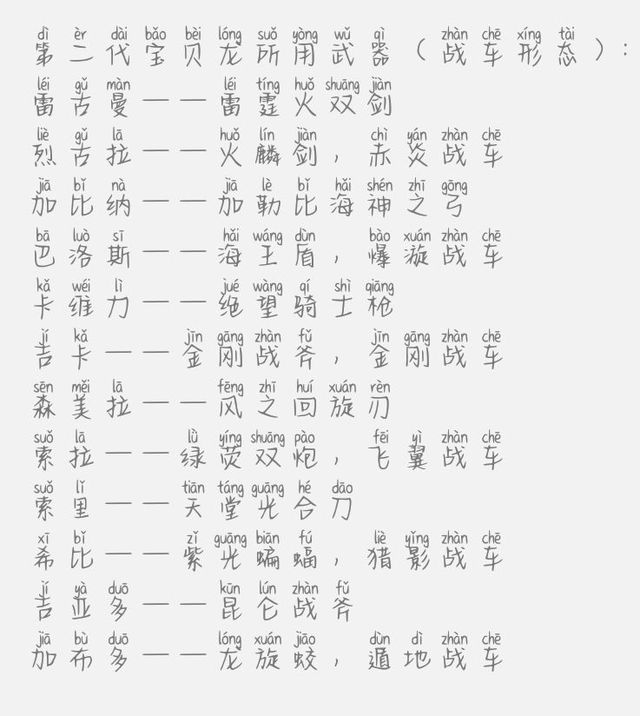 dì èr dài bǎo bèi lóng suǒ yòng wǔ qì zhàn chē xíng tài
第二代宝贝龙所用武器（战车形态）：
léi gǔ màn léi tíng huǒ shuāng jiàn
雷古曼——雷霆火双剑
liè gǔ lā huǒ lín jiàn chì yán zhàn chē
烈古拉——火麟剑，赤炎战车
jiā bǐ nà jiā lè bǐ hǎi shén zhī gōng
加比纳——加勒比海神之弓
bā luò sī hǎi wáng dùn bào xuán zhàn chē
巴洛斯——海王盾，爆漩战车
kǎ wéi lì jué wàng qí shì qiāng
卡维力——绝望骑士枪
jí kǎ jīn gāng zhàn fǔ jīn gāng zhàn chē
吉卡——金刚战斧，金刚战车
sēn měi lā fēng zhī huí xuán rèn
森美拉——风之回旋刃
suǒ lā lǜ yíng shuāng pào fēi yì zhàn chē
索拉——绿荧双炮，飞翼战车
suǒ lǐ tiān táng guāng hé dāo
索里——天堂光合刀
xī bǐ zǐ guāng biān fú liè yǐng zhàn chē
希比——紫光蝙蝠，猎影战车
jí yà duō kūn lún zhàn fǔ
吉亚多——昆仑战斧
jiā bù duō lóng xuán jiāo dùn dì zhàn chē
加布多——龙旋蛟，遁地战车